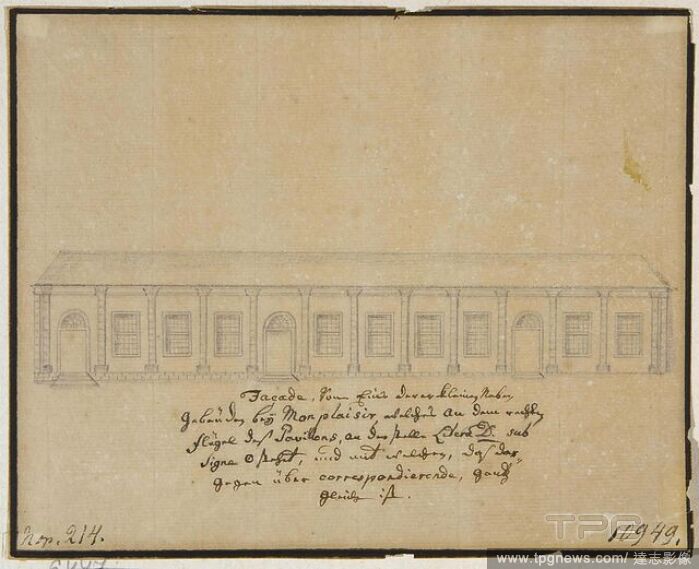 Façade, Vom Eins derer kleinen Neben
Gebäuden bey Monplaisir welches an dem rechten
flügel deß Pavillons, an der stelle Litera D. sub
Signo O stehet, und mit welchen, das dar-
gegen über correspondierende, gantz
gleich ist.
Nop. 214.
10949.
TPG
www.tpgnews.com/ 達志影像